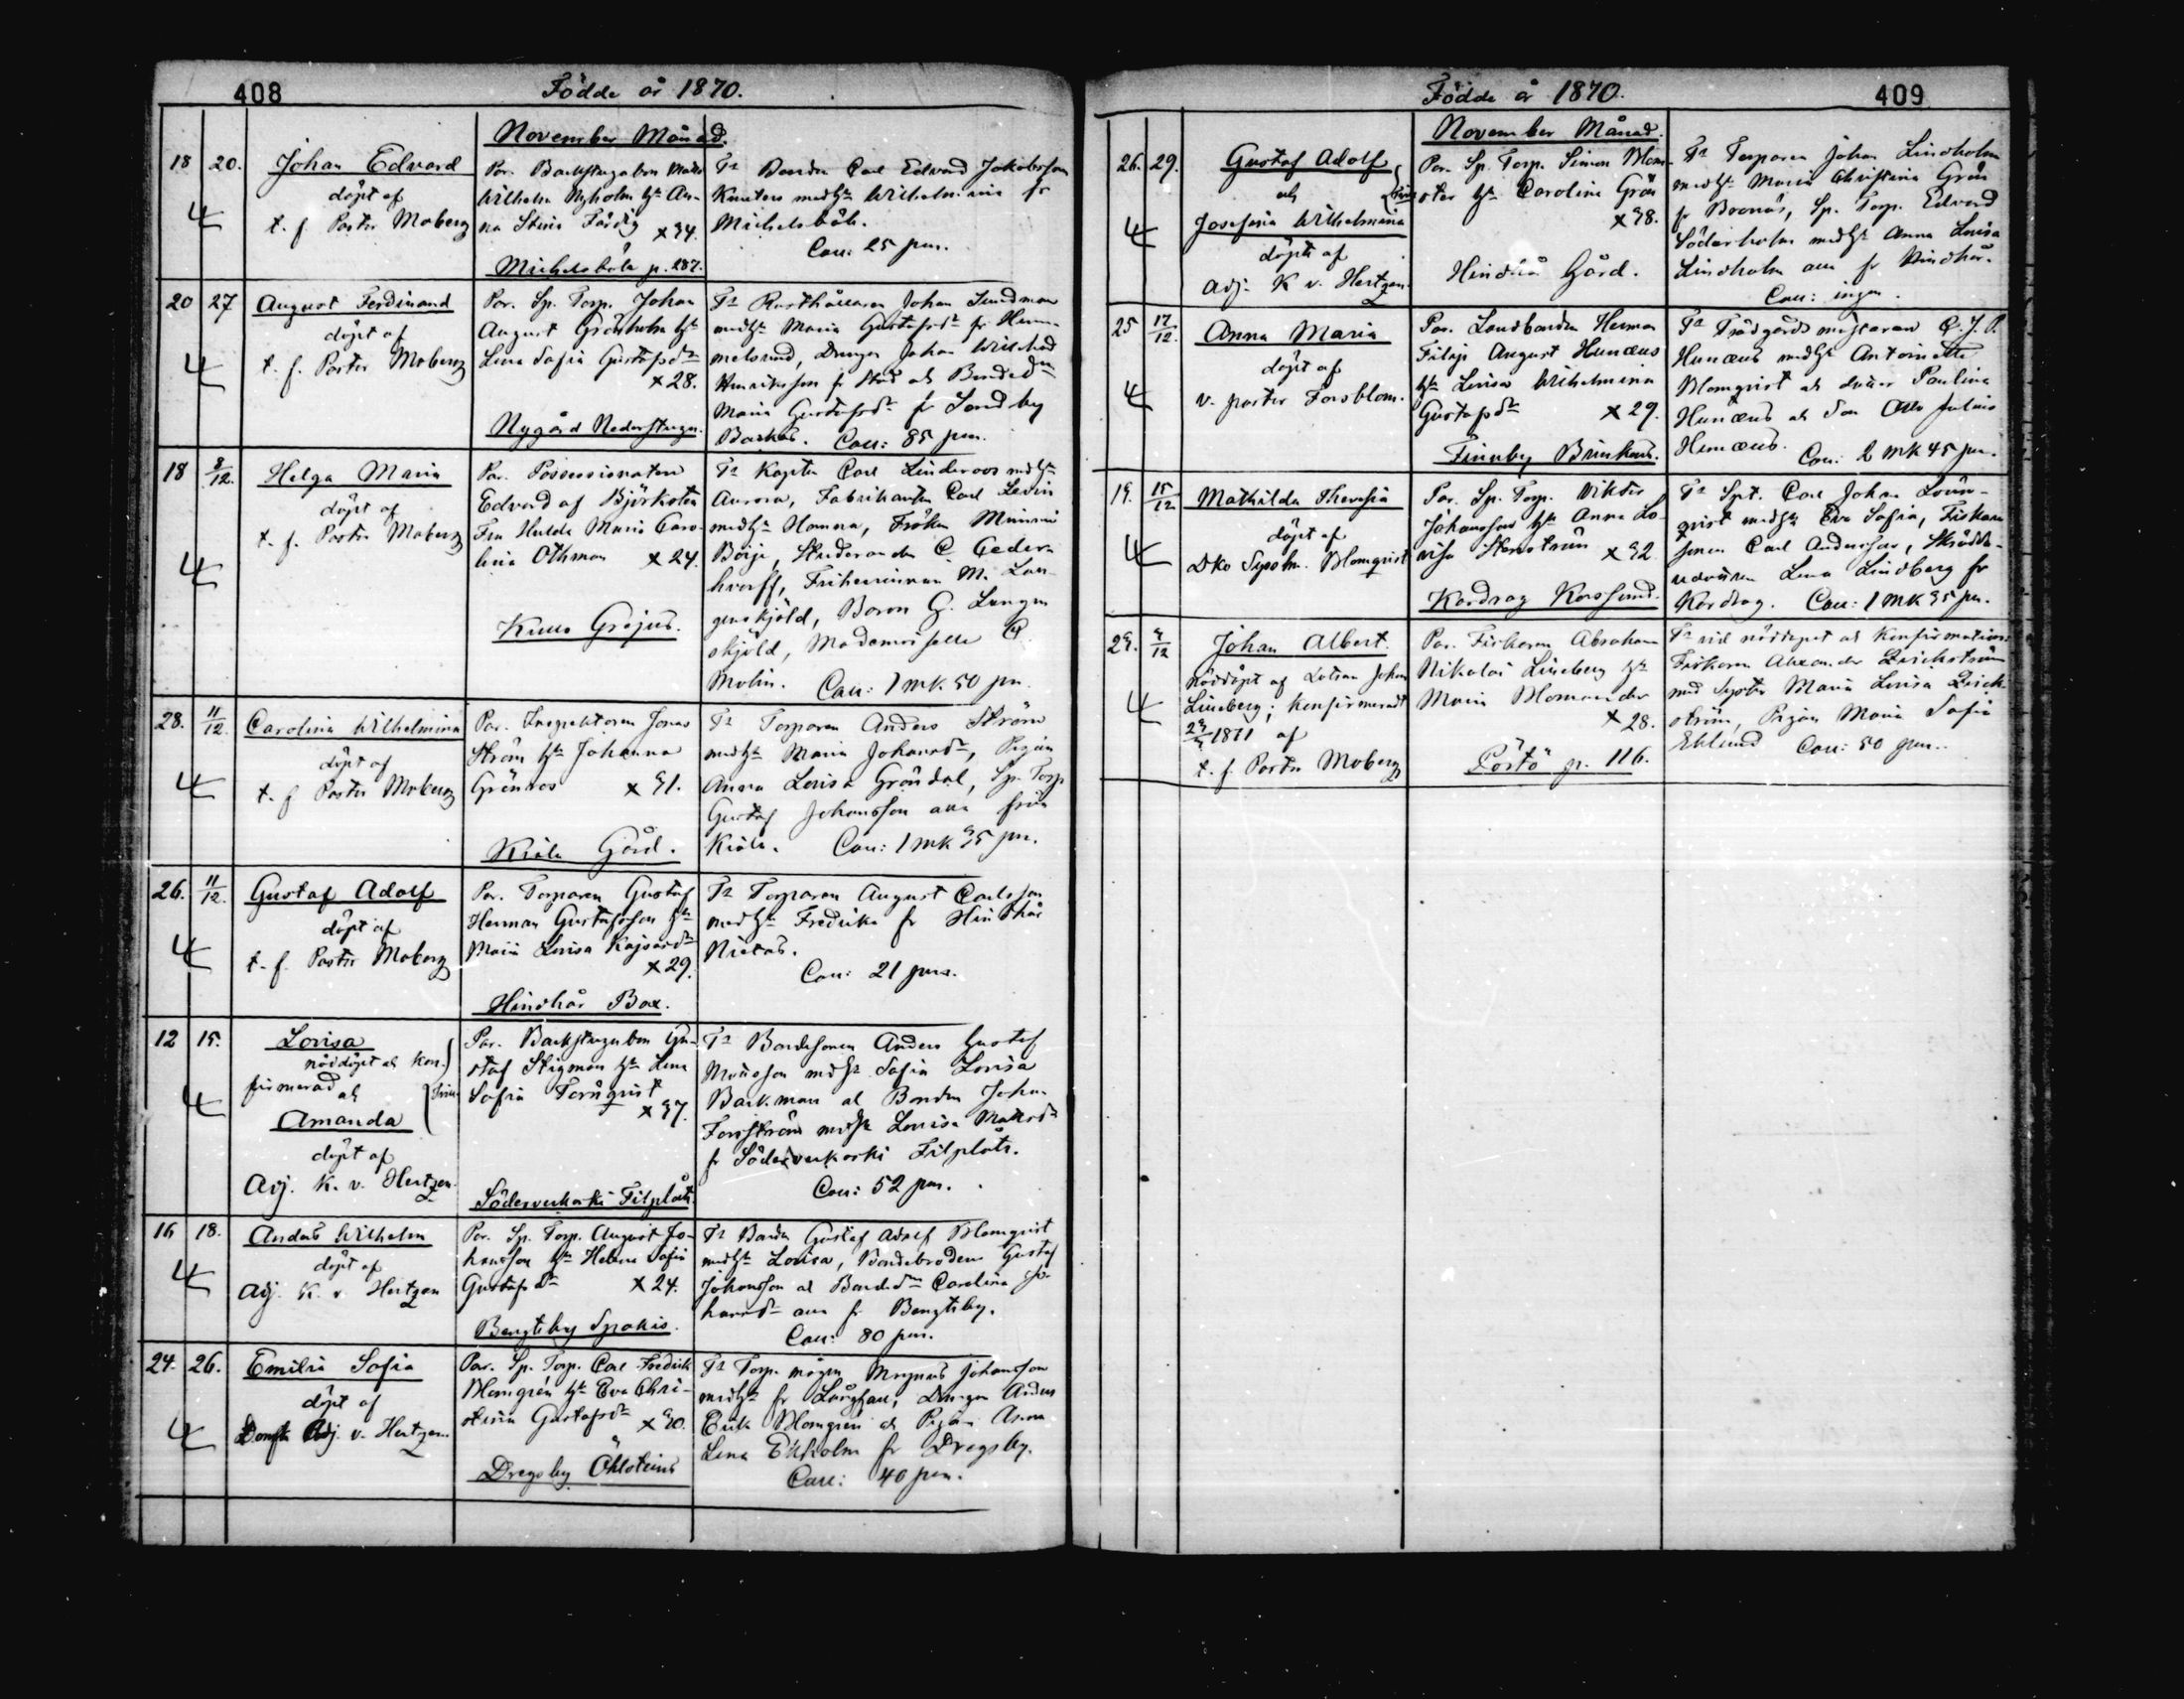 408
Födde år 1870.
November Månad.
18 20. Johan Edvard
döpt af
t. f. Pastor Moberg
Par. Backstugubon Matts
Wilhelm Nyholm hu An-
na Stina Färdig x34.
Michelsböle p. 287.
Ts Bonden Carl Edvard Jakobsson
Knuters med hu Wilhelmina fr
Michelsböle.
Coll: 25 pen.
20 27 August Ferdinand
döpt af
t. f. Pastor Moberg
Par. Sp. Torp. Johan
August Grönholm hu
Lena Sofia Gustafsdr
x28.
Nygård Nederstugu.
Ts Rusthållaren Johan Sundman
med hu Maria Gustafsdr fr Hum-
melsund, Drengen Johan Wilhelm
Henriksson fr Stad och Bondedn
Maria Gustafsdr fr Sondby
Coll: 85 pen.
18 8/12. Helga Maria
döpt af
t. f. Pastor Moberg
Par. Possessionaten
Edvard af Björksten
Fru Hulda Maria Caro-
lina Othman x24.
Kullo Grejus.
Ts Kapten Carl Linderoos med hu
Aurora, Fabrikanten Carl Levin
med hu Hanna, Fröken Minni
Böije, Studeranden C Geder-
, Friherrinnan M. Lan-
genskjöld, Baron G. Langen
skjöld, Mademoiselle C
Molin. Coll: 1 mk. 50 pn.
28. 11/12. Carolina Wilhelmina
döpt af
t. f Pastor Moberg
Par. Inspektoren Jonas
Ström hu Johanna
Grönroos x31.
Kiala Gård.
Ts Torparen Anders Ström
med hu Maria Johansdr, Pigan
Anna Lovisa Gröndal, Sp. Torp
Gustaf Johansson alla från
Kiala. Coll: 1 mk 35 pn.
26. 11/12. Gustaf Adolf
döpt af
t. f. Pastor Moberg
Par. Torparen Gustaf
Herman Gustafsson hu
Maria Lovisa Kajsasdr
x29.
Hindhår Box.
Ts Torparen August Carlsson
med hu Fredrika fr Hindhår
Coll: 21 pen.
12 15. Lovisa
nöddöpt och kon-
firmerad
och
Amanda
döpt af
Adj. K. v. Hertzen.
Par. Backstugubon Gu-
staf Stigman hu Lena
Sofia Fornqvist
x37.
Söderveckoski Filplåts.
Ts Bondesonen Anders Gustaf
Månsson med hu Sofia Lovisa
Backman och Bonden Johan
Forsström med hu Lovisa Mattsdr
fr Söderveckoski Filplåts.
Coll: 52 pen.
16 18. Anders Wilhelm
döpt af
Adj. K. v. Hertzen
Par. Sp. Torp. August Jo-
hansson hu Helena Sofia
Gustafsdr x24.
Bengtsby Spakis.
Ts Bonden Gustaf Adolf Blomqvist
med hu Lovisa, Bondebrodern Gustaf
Johansson och Bondedn Carolina Jo-
hansdr alla fr Bengtsby.
Coll: 80 pen.
24. 26. Emilia Sofia
döpt af
Domk Adj. v. Hertzen.
Par. Sp. Torp. Carl Fredrik
Blomgrén hu Eva Chri-
stina Gustafsdr x30.
Dregsby Öhlsteins
Ts Torp. mågen Magnus Johansson
med hu fr , Drengen Anders
Erik Blomgrén och Pigan Anna
Lena Ekholm fr Dregsby.
Coll: 40 pen.
Födde år 1870.
409
November Månad.
26. 29. Gustaf Adolf
och
Josefina Wilhelmina
döpte af
Adj. K v. Hertzen.
Par. Sp. Torp. Simon Blom-
ster hu Carolina Grön
x38.
Hindhår Gård.
Ts Torparen Johan Lindholm
med hu Maria Christina Grön
fr Boxnäs, Sp. Torp. Edvard
Söderholm med hu Anna Lovisa
Lindholm alla fr Hindhår.
Coll: ingen.
25 17/12. Anna Maria
döpt af
v. pastor Forsblom.
Par. Landbonden Herman
Filip August Hunæus
hu Lovisa Wilhelmina
Gustafsdr x29.
Finnby Brinkas.
Ts Trädgårdsmästaren C. J. A.
Hunæus med hu Antoinette
Blomqvist och Paulina
Hunæus och Son Otto Julius
Hunæus. Coll: 2 mk 45 pn.
19. 15/12 Mathilda Theresia
döpt af
Dko Syslm. Blomqvist
Par. Sp. Torp. Viktor
Johansson hu Anna Lo-
visa Stenström x32
Kardrag Korssund.
Ts Spt. Carl Johan Lövn-
qvist med hu Eva Sofia, Fiskare
sonen Carl Andersson, Skrädda-
Lena Lindberg fr
Kardrag. Coll: 1 mk 35 pn.
29. 4/12 Johan Albert
nöddöpt af Lotsen Johan
Lineberg; konfirmeradt
1871 af
t. f. Pastor Moberg
Par. Fiskaren Abraham
Nikolai Lineberg hu
Maria Blomander
x28.
Pörtö p. 116.
Ts vid nöddopet och konfirmation:
Fiskaren Alexander Lerichström
med Syster Maria Lovisa Lerich-
ström, Pigan Maria Sofia
Eklund Coll: 50 pen.